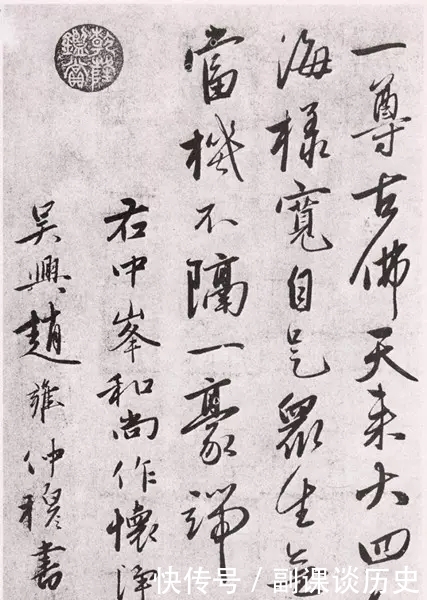 一尊古佛天来大四
海樣寬自是眾生
當機不隔一豪端
右中峯和尚作懷淨
吳興趙雍仲穆書
乾隆鑑賞
快传号 / 副课谈历史